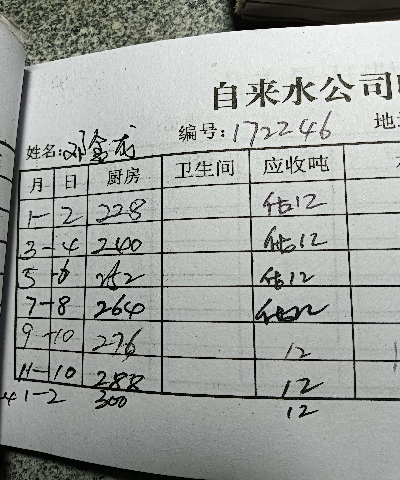 自来水公司
姓名:邓金成 编号:172246 地
月 日 厨房 卫生间 应收吨
1-2 228 估12
3-4 240 估12
5-6 252 估12
7-8 264 估12
9-10 276 12
11-10 288 12
4 1-2 300 12